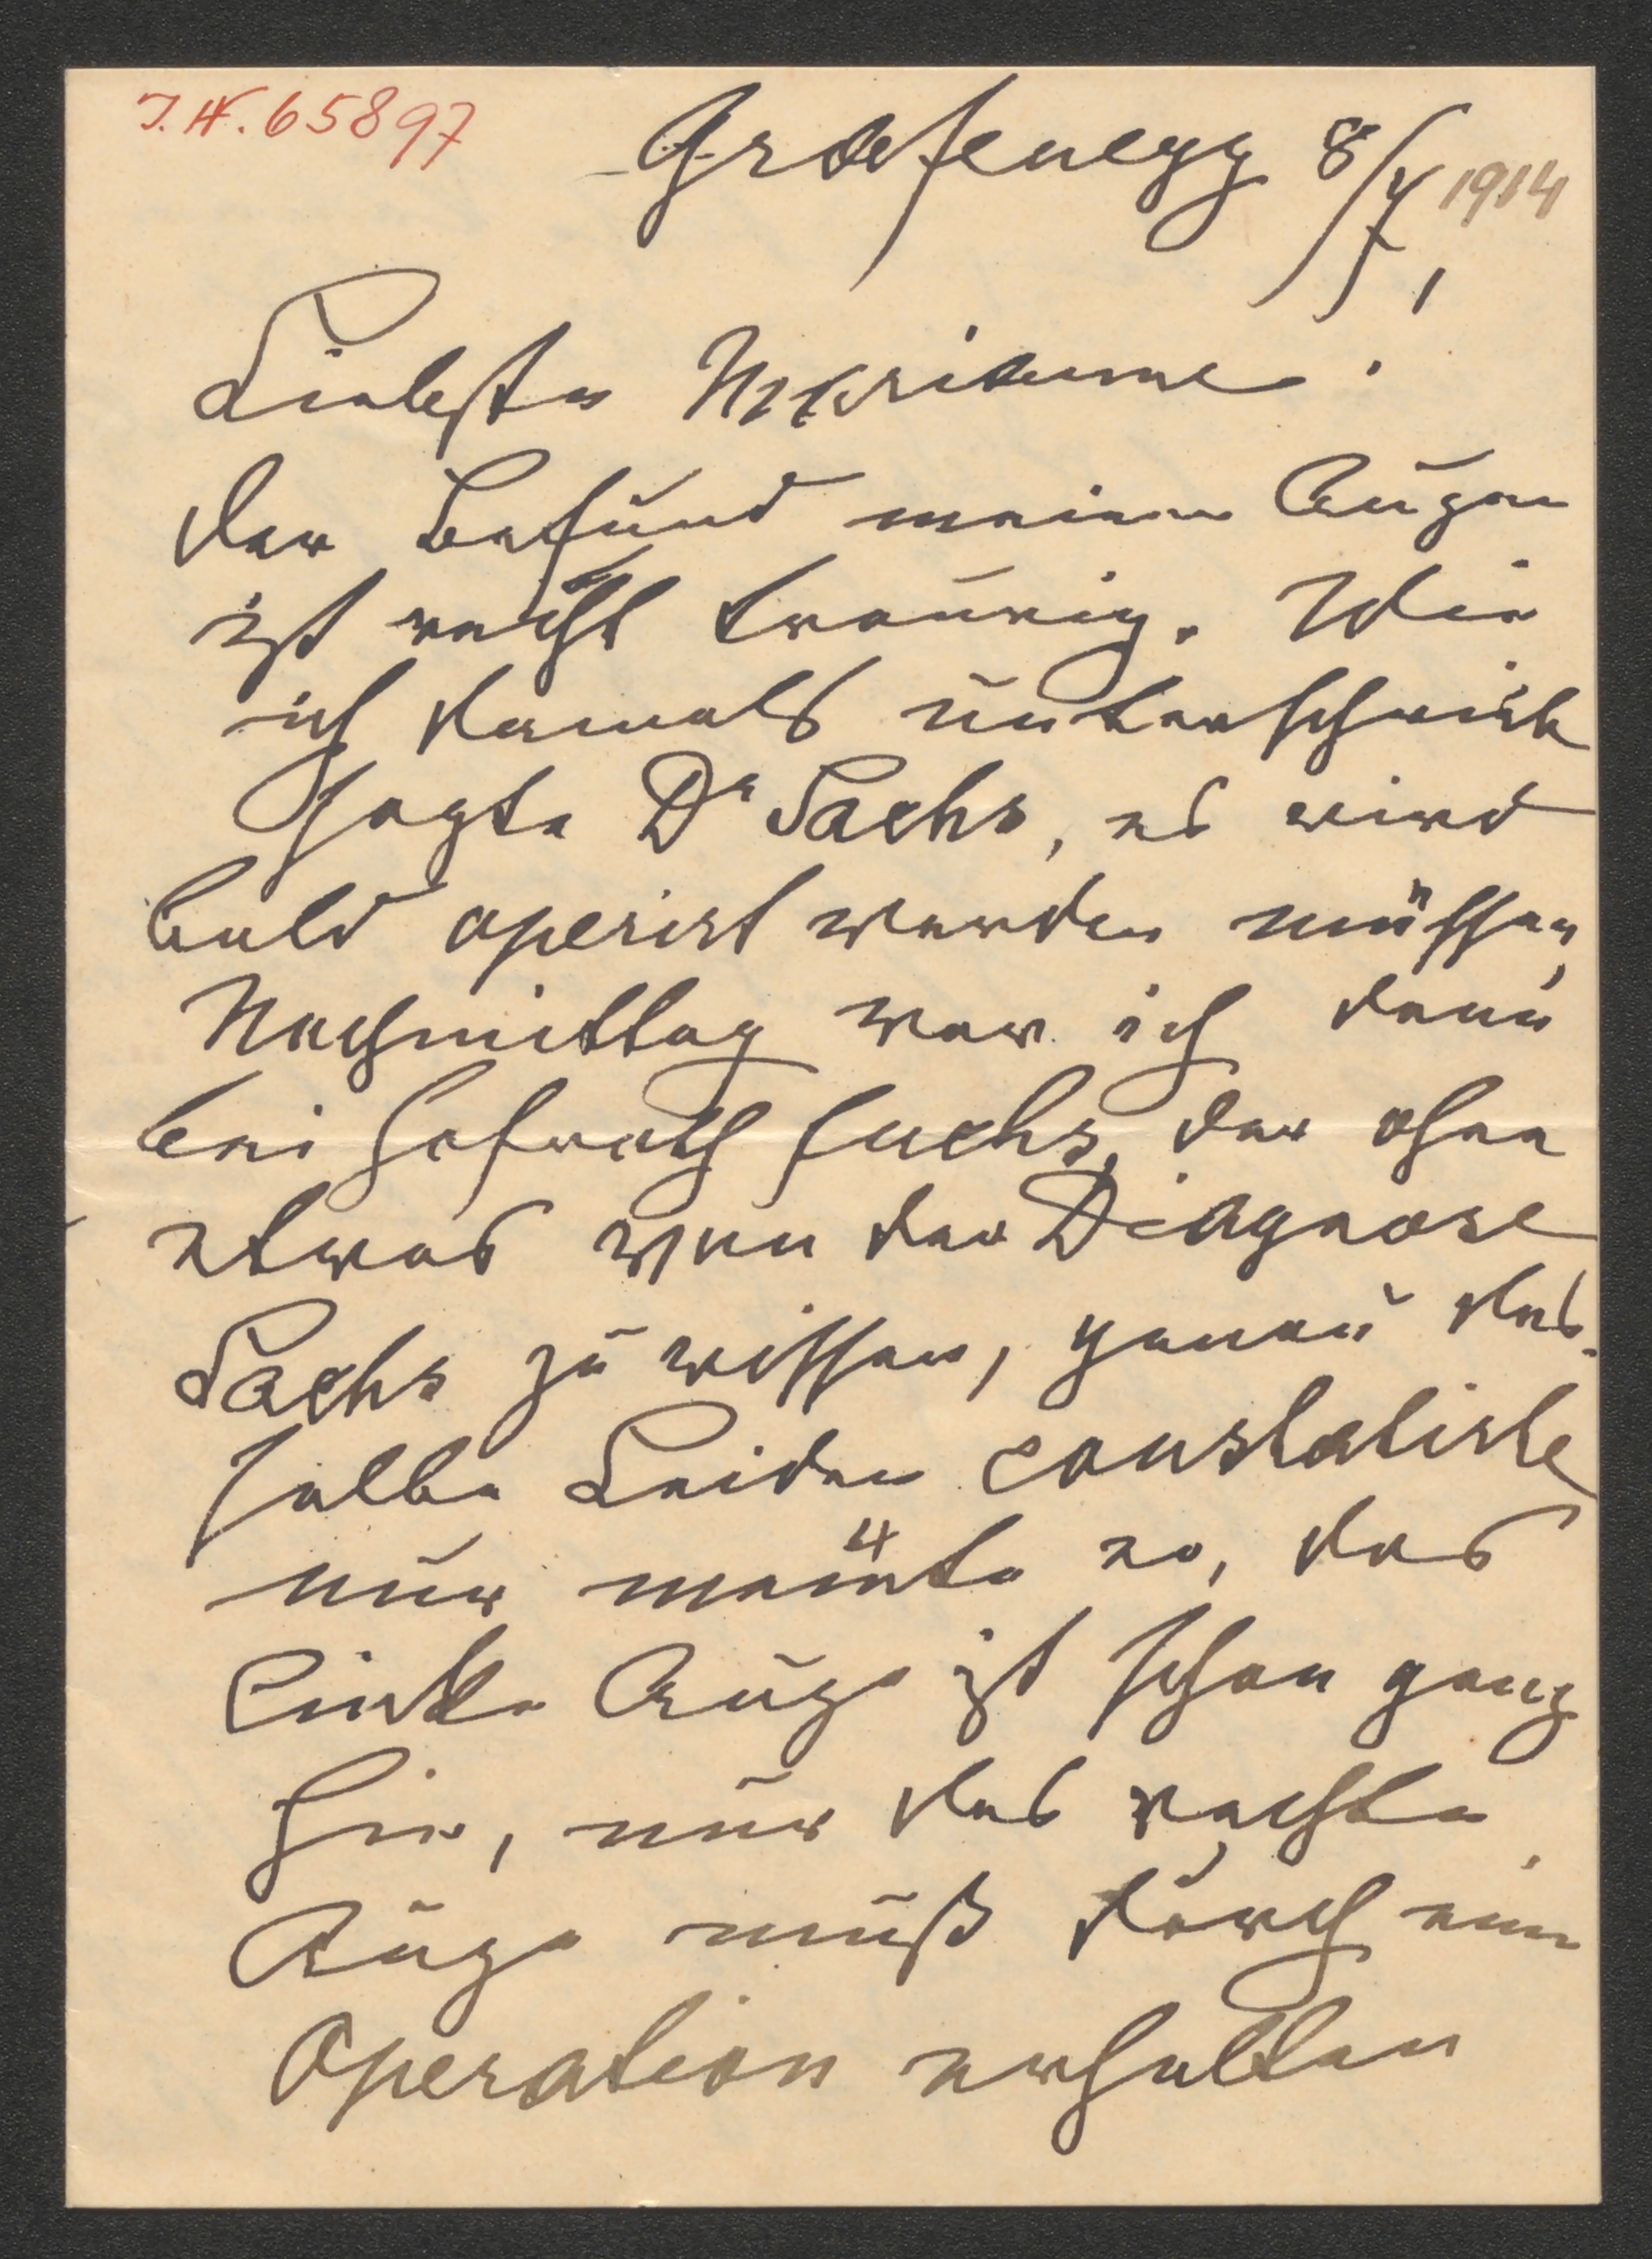 J.N. 65897
Grafenegg 8/7 1914
Liebste Marianne.
Der Befund meiner Augen
ist recht traurig. Wie
ich damals unterschrieb
sagte Dr Sachs, es wird
bald operirt werden müssen,
Nachmittag war ich dann
bei Hofrath Fuchs, der ohne
etwas von der Diagnose
Sachs zu wissen, genau das-
selbe Leiden constatirte
nur meinte er, das
linke Auge ist schon ganz
hin, nur das rechte
Auge muß durch eine
Operation erhalten